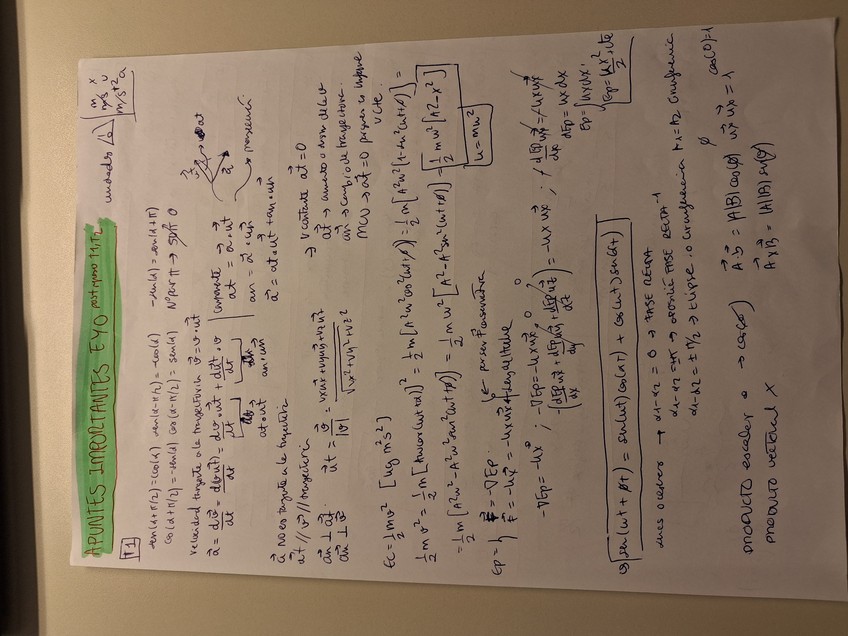 APUNTES IMPORTANTES EYO post repaso T1, T2
unidades m x
m/s v
m/s^2 a
T1
sen(α+π/2)=cos(α) sen(α-π/2)=-cos(α) -sen(α)=sen(α+π)
cos(α+π/2)=-sen(α) cos(α-π/2)=sen(α) Nº por π → 0
velocidad tangente a la trayectoria v=v·ut
a=dv/dt=d(v·ut)/dt=dv/dt·ut+dut/dt·v
at·ut an·un
componente
at = a·ut
an = a·un
a = at·ut+an·un
proyección
a no es tangente a la trayectoria
at // v // trayectoria
an ⊥ at
an ⊥ v
ut = v/|v| = vxux+vyuy+vzuz/√vx²+vy²+vz²
→ v constante at=0
at → aumento o dism de la v
an → cambio de trayectoria
MCU → at=0 porque
v cte.
Ec=½mv² [kg m²s²]
½mv²=½m[Aωcos(ωt+φ)]²=½m[A²ω²cos²(ωt+φ)]=½m[A²ω²[1-sen²(ωt+φ)]]=
=½m[A²ω²-A²ω²sen²(ωt+φ)]=½mω²[A²-A²sen²(ωt+φ)]=½mω²[A²-x²]
k=mω²
Ep= F=-∇Ep.
F=-kx=-kxux+ ley de Hooke
-∇Ep=-kx ; -∇Ep=-kxux
-[dEp/dx ux+dEp/dy uy+dEp/dz uz]=-kx ux ; -dEp/dx ux=-kxux
dEp=kxdx
Ep=∫kxdx;
Ep=kx²/2+cte
sen(ωt+φt)=sin(ωt)cos(αt)+cos(ωt)sin(αt)
→ α1-α2=0 → FASE RECTA
α1-α2=±π → oposición FASE RECTA^-1
α1-α2=±π/2 → Elipse o circunferencia A1=A2 circunferencia
producto escalar · → cos(φ) A·B=|A||B|cos(φ) ux·ux=1 cos(0)=1
producto vectorial x AxB=|A||B|sen(φ)